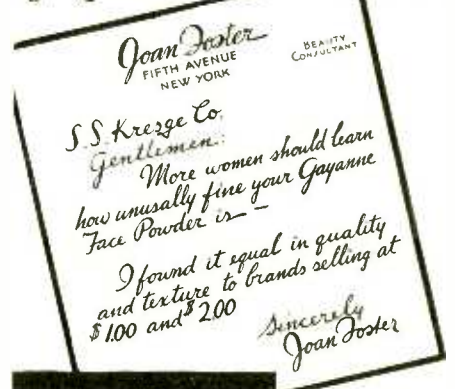 Joan Foster
FIFTH AVENUE
NEW YORK
BEAUTY
CONSULTANT
S.S. Kresge Co.
Gentlemen:
More women should learn
how unusally fine your Gayanne
Face Powder is — —
I found it equal in quality
and texture to brands selling at
$1.00 and $2.00
Sincerely
Joan Foster